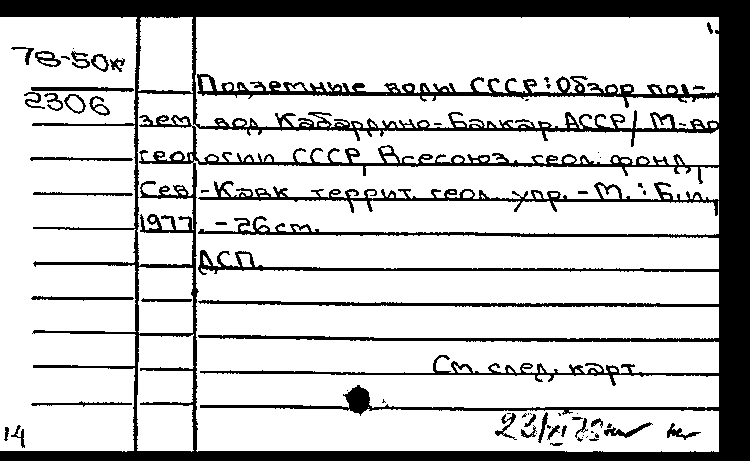 1.
78-50к
2306
Подземные воды СССР: Обзор под-
зем. вод Кабардино-Балкар. АССР / М-во
геологии СССР, Всесоюз. геол. фонд,
Сев.-Кавк. террит. геол. упр. - М. : Б.и.,
1977. - 26 см.
ДСП.
См. след. карт.
14
23/XI 78